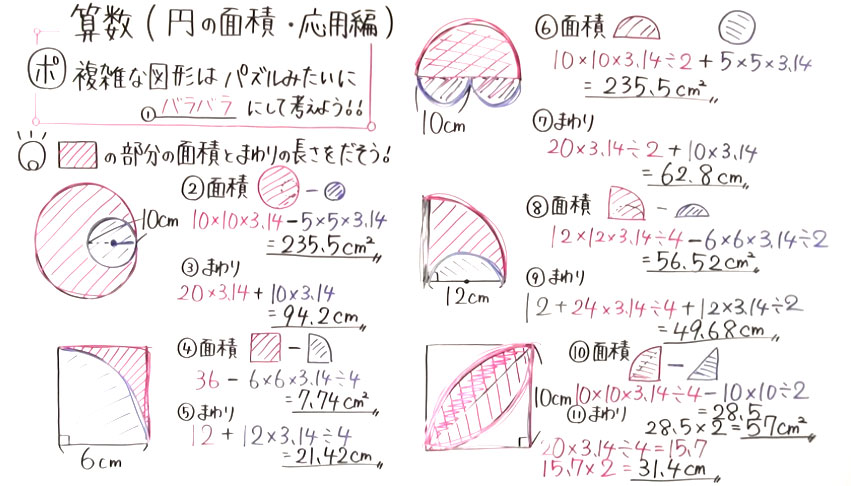 算数(円の面積・応用編)
ポ 複雑な図形はパズルみたいに
① バラバラ にして考えよう!!
の部分の面積とまわりの長さをだそう!
10cm
②面積 −
10×10×3.14−5×5×3.14
=235.5cm²
③まわり
20×3.14+10×3.14
=94.2cm
6cm
④面積 −
36−6×6×3.14÷4
=7.74cm²
⑤まわり
12+12×3.14÷4
=21.42cm
10cm
⑥面積
10×10×3.14÷2+5×5×3.14
=235.5cm²
⑦まわり
20×3.14÷2+10×3.14
=62.8cm
12cm
⑧面積 −
12×12×3.14÷4−6×6×3.14÷2
=56.52cm²
⑨まわり
12+24×3.14÷4+12×3.14÷2
=49.68cm
10cm
⑩面積 −
10×10×3.14÷4−10×10÷2
=28.5
28.5×2=57cm²
⑪まわり
20×3.14÷4=15.7
15.7×2=31.4cm